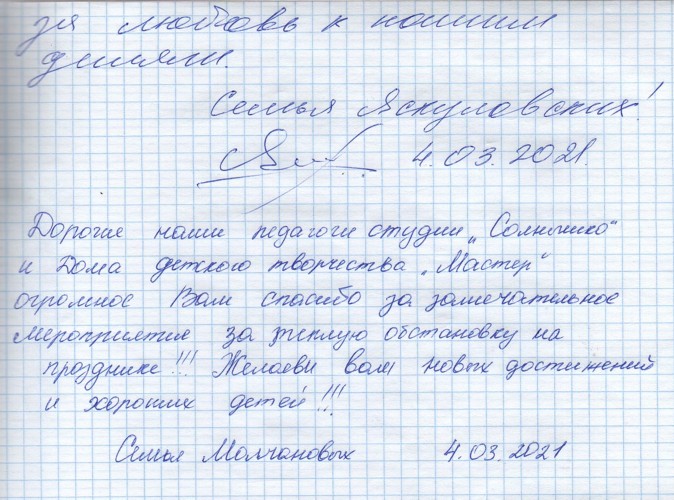 за любовь к нашим
детям.
Семья Яскуловских!
4.03.2021.
Дорогие наши педагоги студии „Солнышко“
и Дома детского творчества „Мастер“
огромное Вам спасибо за замечательное
мероприятия за теплую обстановку на
празднике!!! Желаем вам новых достижений
и хороших детей!!!
Семья Молчановых 4.03.2021